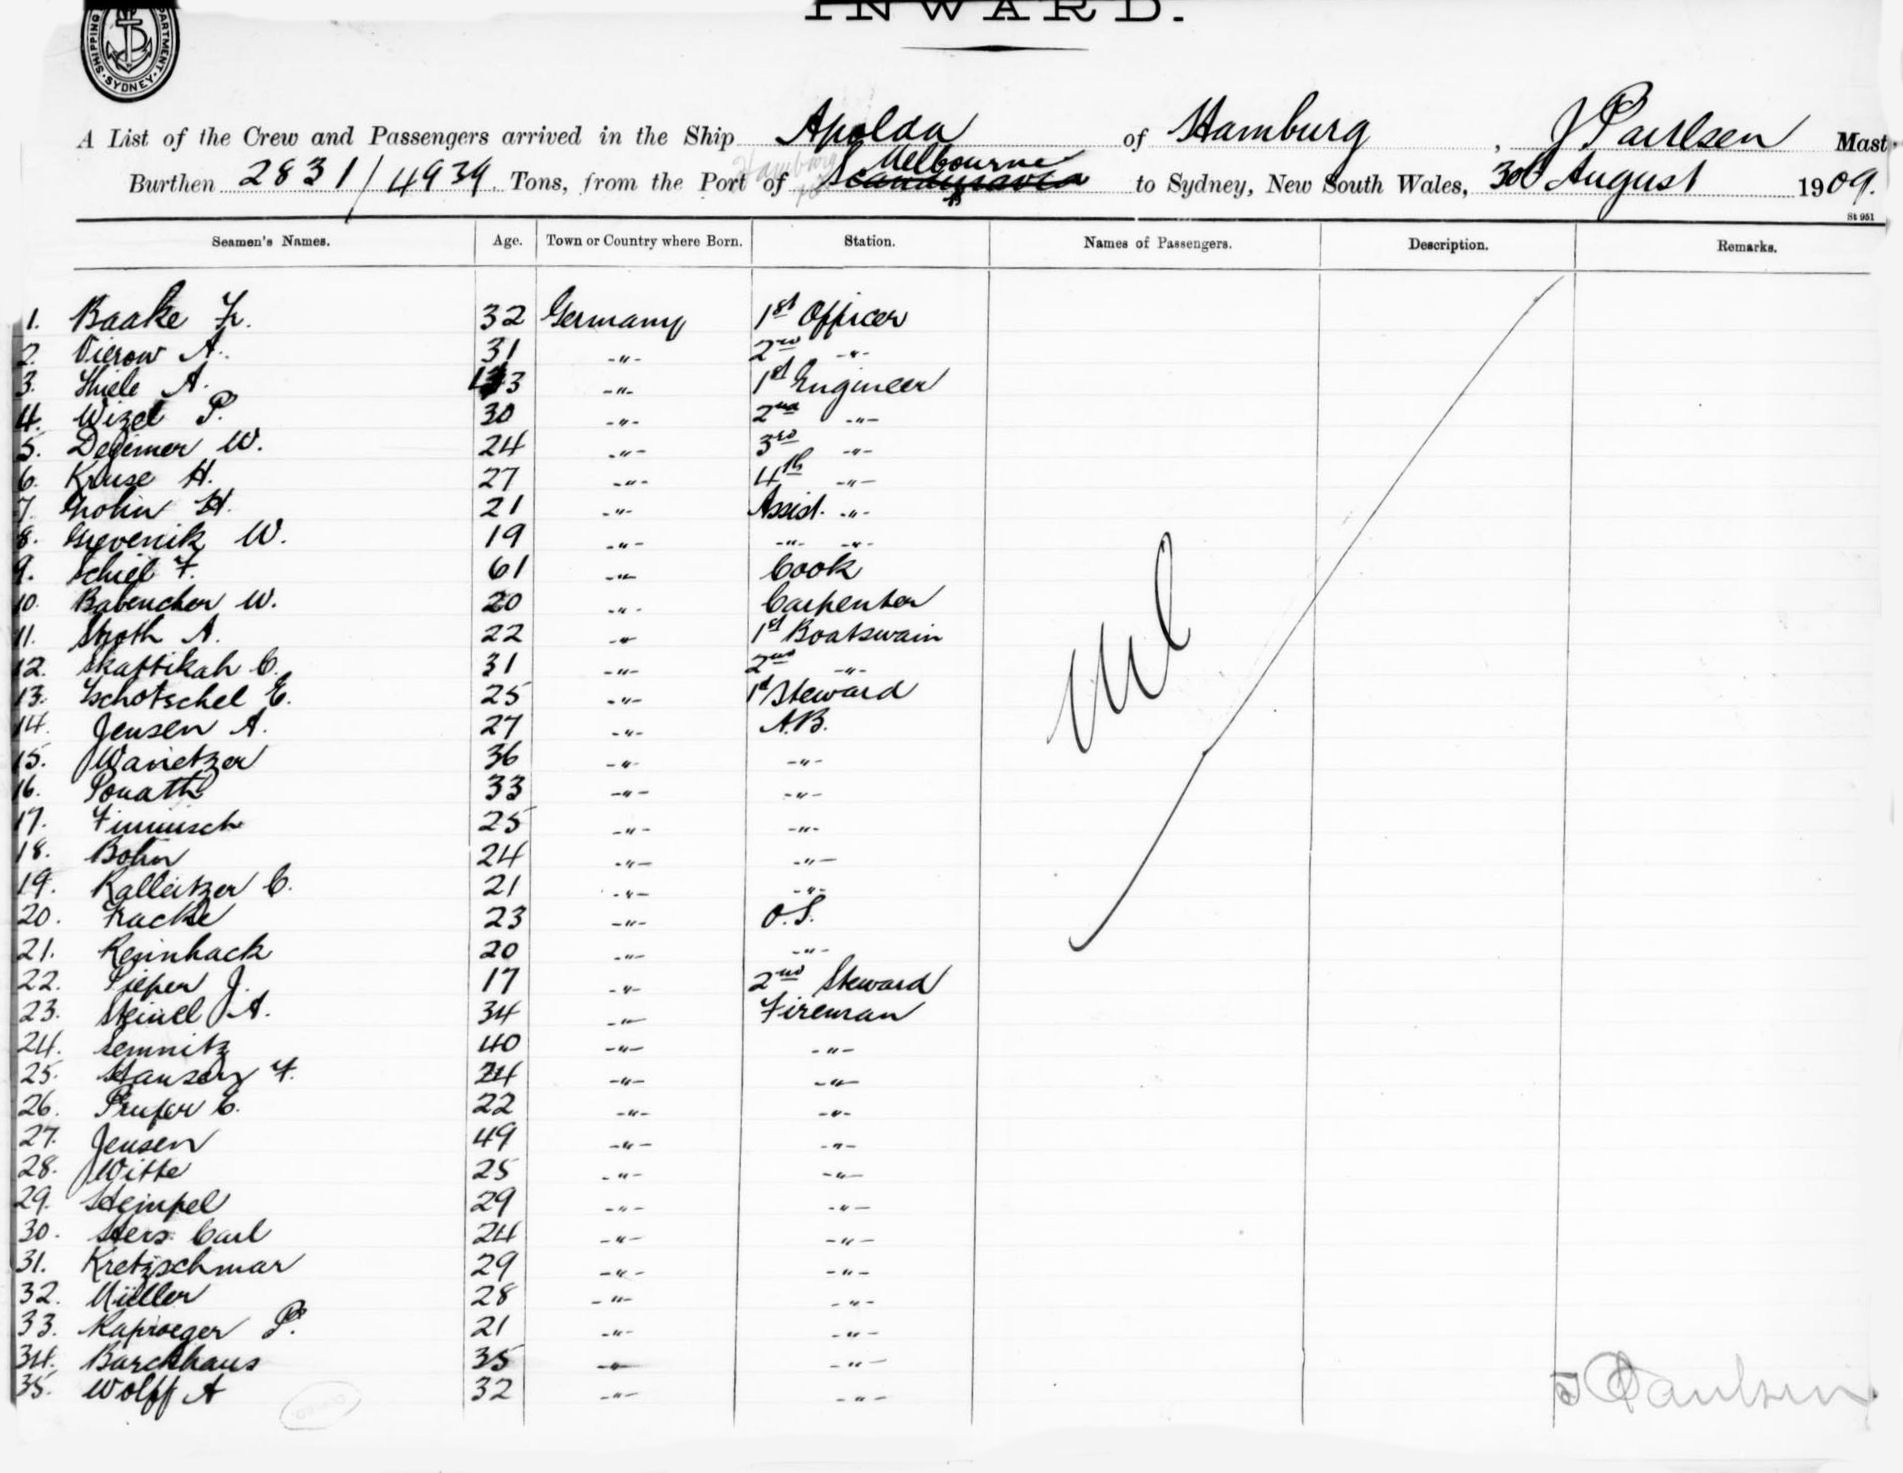 INWARD.
SHIPPING DEPARTMENT. SYDNEY
A List of the Crew and Passengers arrived in the Ship Apolda of Hamburg, J Paulsen Mast
Hamburg Melbourne
Burthen 2831/4939 Tons, from the Port of Scandinavia to Sydney, New South Wales, 30th August 1909.
St 951
Seamen's Names. Age. Town or Country where Born. Station. Names of Passengers. Description. Remarks.
1. Baake Fr. 32 Germany 1st Officer
2. Vierow A. 31 -"- 2nd -"-
3. Thiele A. 3 -"- 1st Engineer
4. Wizel P. 30 -"- 2nd -"-
5. Degener W. 24 -"- 3rd -"-
6. Kruse H. 27 -"- 4th -"-
7. Grohn H. 21 -"- Assist. -"-
8. Grevenik W. 19 -"- -"- -"-
9. Schiel F. 61 -"- Cook
10. Babencher W. 20 -"- Carpenter
11. Stroth A. 22 -"- 1st Boatswain
12. Skattikah C. 31 -"- 2nd -"-
13. Tschotschel E. 25 -"- 1st Steward
14. Jensen A. 27 -"- A.B.
15. Wanetzer 36 -"- -"-
16. Ponath 33 -"- -"-
17. Finnisch 25 -"- -"-
18. Bohn 24 -"- -"-
19. Kalleitzer C. 21 -"- -"-
20. Fracke 23 -"- O.S.
21. Reinhack 20 -"- -"-
22. Pieper J. 17 -"- 2nd Steward
23. Steinel A. 34 -"- Fireman
24. Semnitz 40 -"- -"-
25. Hansen F. 24 -"- -"-
26. Prufer C. 22 -"- -"-
27. Jensen 49 -"- -"-
28. Witte 25 -"- -"-
29. Stempel 29 -"- -"-
30. Hers Carl 24 -"- -"-
31. Kretzschmar 29 -"- -"-
32. Müller 28 -"- -"-
33. Kaproeger P. 21 -"- -"-
34. Barckhaus 35 -"- -"-
35. Wolff A 32 -"- -"-
Nil
J Paulsen